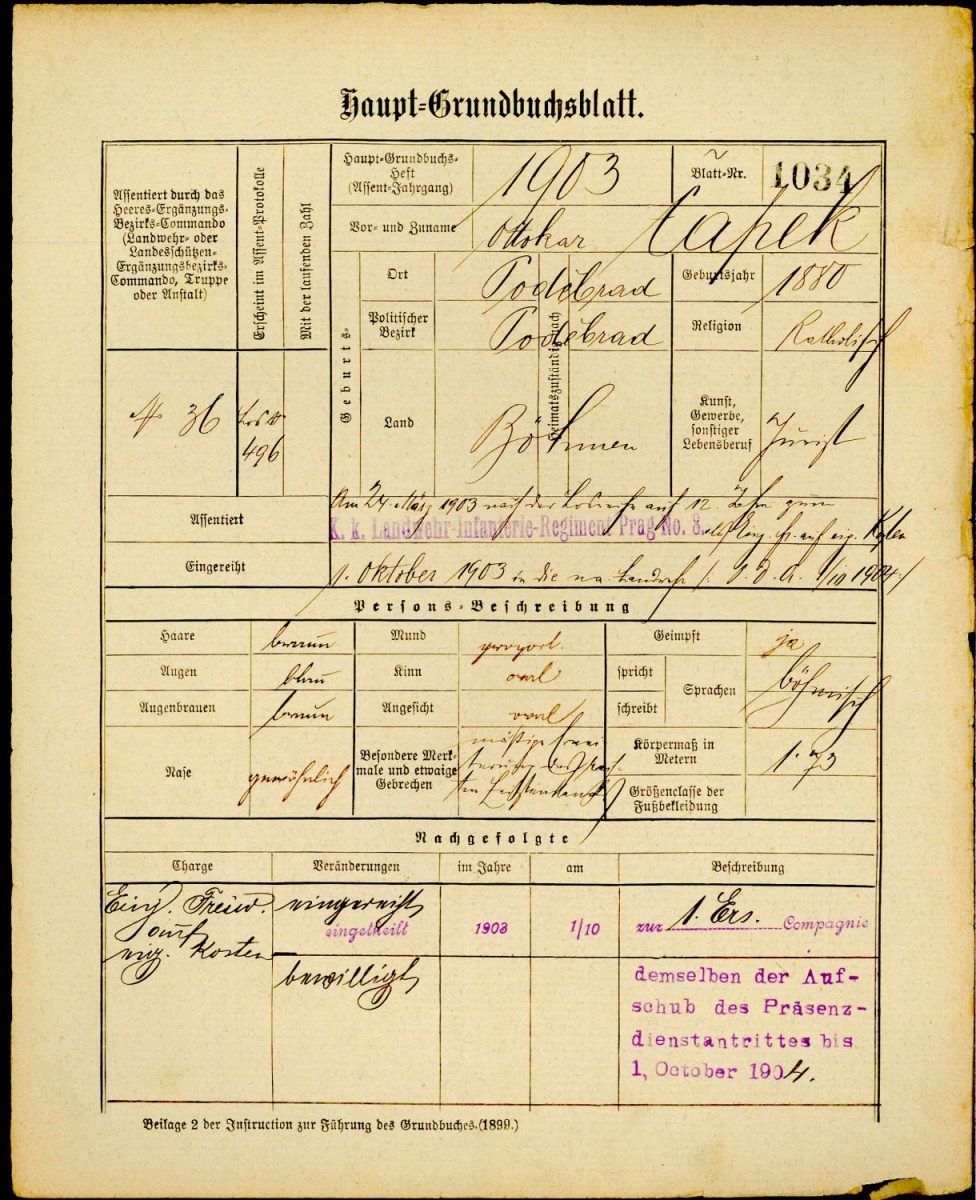 Haupt-Grundbuchsblatt.
Assentiert durch das
Heeres-Ergänzungs-
Bezirks-Commando
(Landwehr- oder
Landesschützen-
Ergänzungsbezirks-
Commando, Truppe
oder Anstalt)
Erscheint im Assent-Protokolle
Mit der laufenden Zahl
Haupt-Grundbuchs-
Heft
(Assent-Jahrgang)
1903
Blatt-Nr.
1034
Vor- und Zuname
Ottokar Čapek
Geburts-
Ort
Poděbrad
Heimatszuständig nach
Geburtsjahr
1880
Politischer
Bezirk
Poděbrad
Religion
Katholisch
Land
Böhmen
Kunst,
Gewerbe,
sonstiger
Lebensberuf
Jurist
36
496
Assentiert
Am 24. März 1903 nach der Losreihe auf 12 Jahre zum
K. k. Landwehr-Infanterie-Regiment Prag No. 8. als Einj. Fr. auf eig. Kosten
Eingereiht
1. Oktober 1903 in die Landwehr 1/10 1904
Persons-Beschreibung
Haare
braun
Mund
proport.
Geimpft
ja
Augen
blau
Kinn
oval
spricht
schreibt
Sprachen
böhmisch
Augenbrauen
braun
Angesicht
oval
Nase
gewöhnlich
Besondere Merk-
male und etwaige
Gebrechen
mäßige Erwei-
terung des
Körpermaß in
Metern
1.73
Größenclasse der
Fußbekleidung
Nachgefolgte
Charge
Veränderungen
im Jahre
am
Beschreibung
Einj. Freiw.
auf
eig. Kosten
eingereiht
eingetheilt
1903
1/10
zur 1. Ers. Compagnie
bewilligt
demselben der Auf-
schub des Präsenz-
dienstantrittes bis
1, October 1904.
Beilage 2 der Instruction zur Führung des Grundbuches.(1899.)